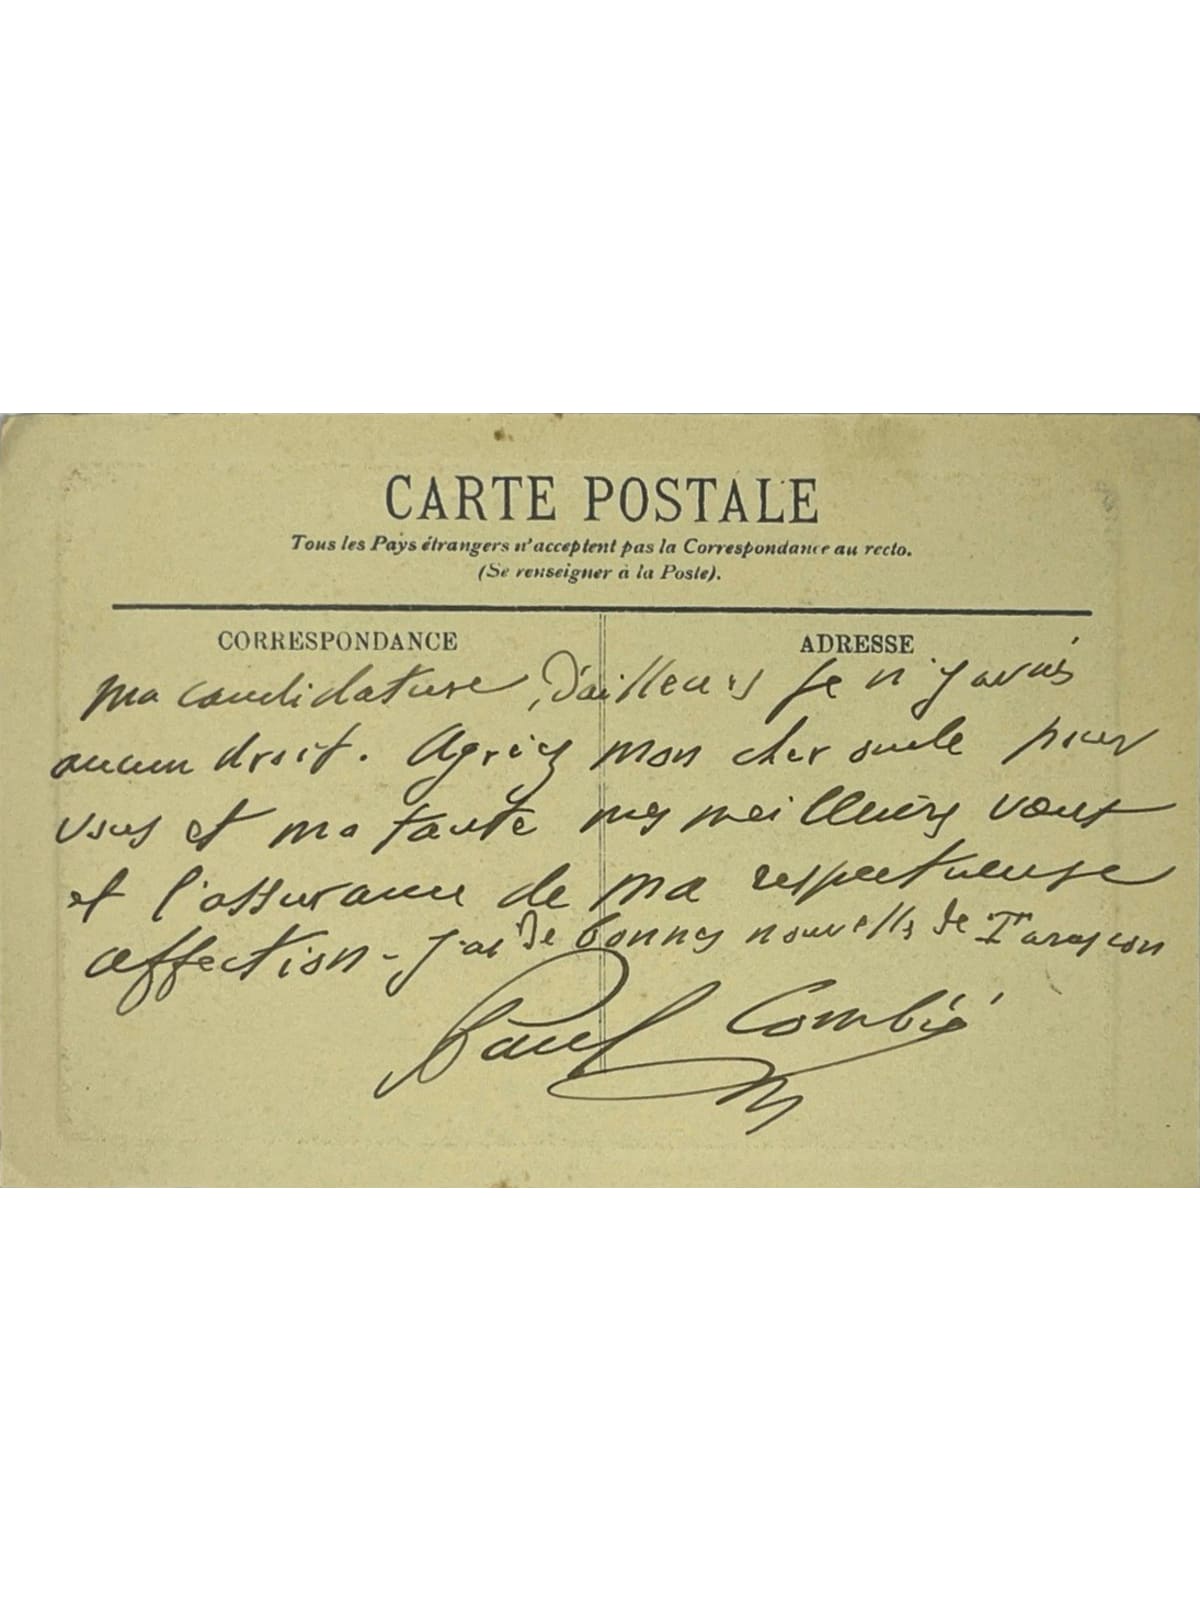 CARTE POSTALE
Tous les Pays étrangers n'acceptent pas la Correspondance au recto.
(Se renseigner à la Poste).
CORRESPONDANCE ADRESSE
ma candidature, D'ailleurs je n'y avais
aucun droit. Agréez mon cher oncle pour
vous et ma tante mes meilleurs vœux
et l'assurance de ma respectueuse
affection - J'ai de bonnes nouvelles de Tarascon
Paul Combié